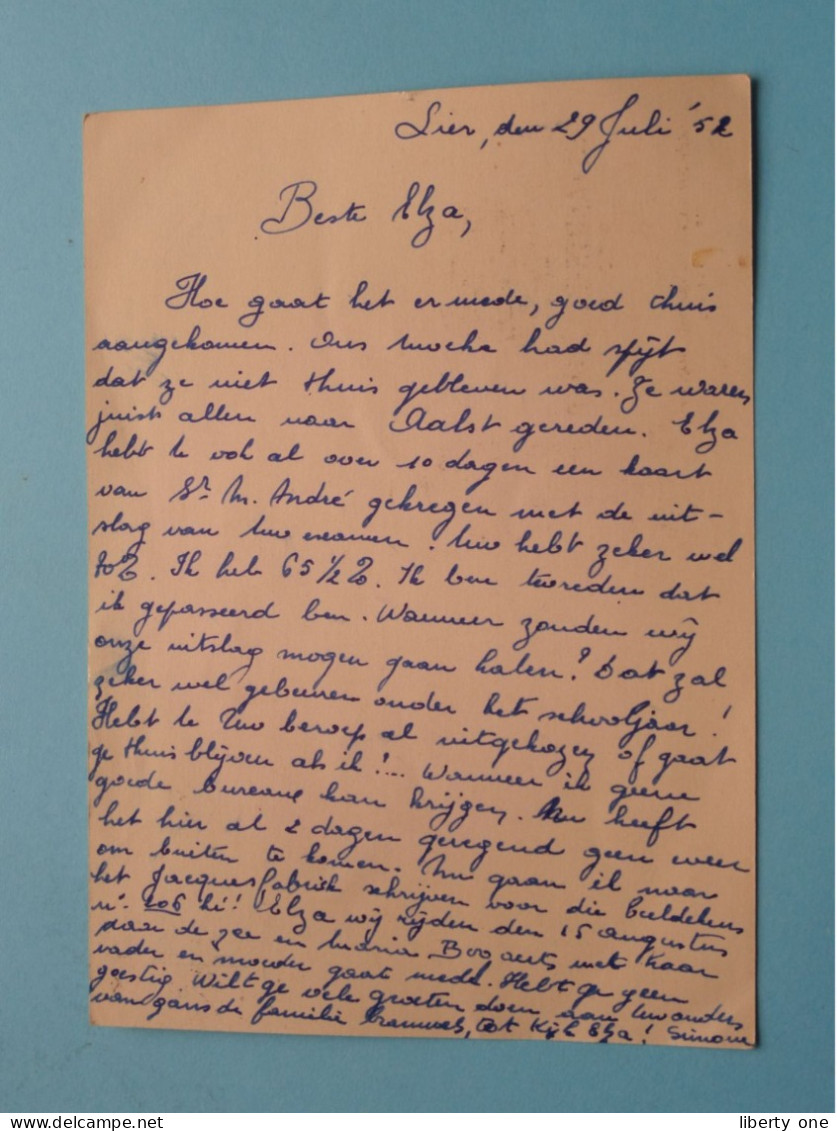 Lier, den 29 Juli '52
Beste Elza,
Hoe gaat het er mede, goed thuis
aangekomen. Ons moeke had spijt
dat ze niet thuis gebleven was. Ze waren
juist allen naar Aalst gereden. Elza
hebt te ook al over 10 dagen een kaart
van Sr. M. André gekregen met de uit-
slag van uw examen. Uw hebt zeker wel
70%. Ik heb 65 1/2 %. Ik ben tevreden dat
ik gepasseerd ben. Wanneer zouden wij
onze uitslag mogen gaan halen? Dat zal
zeker wel gebeuren onder het schooljaar!
Hebt te uw beroep al uitgekozen of gaat
ge thuis blijven als ik!... Wanneer ik geene
goede bureau kan krijgen. Nu heeft
het hier al 2 dagen geregend geen weer
om buiten te komen. Nu gaan ik naar
het Jacquesfabriek schrijven voor die beeldekens
n°. 206 hi!! Elza wij rijden den 15 augustus
naar de zee en Maria Bogaerts met haar
vader en moeder gaat mede. Hebt ge geen
goestig. Wilt ge vele groeten doen aan uw ouders
van gans de familie, tot kijk Elza! Simone
liberty one